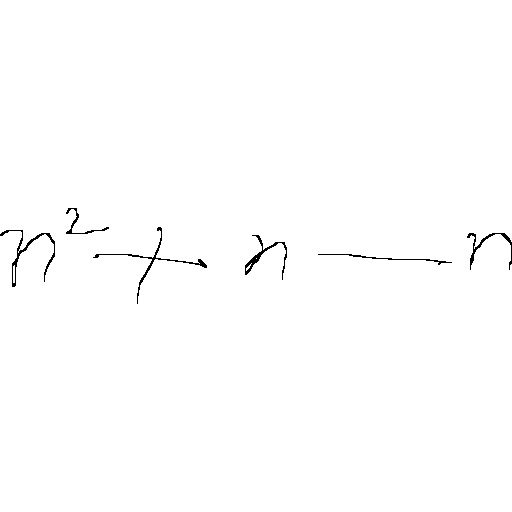 n² + n − n